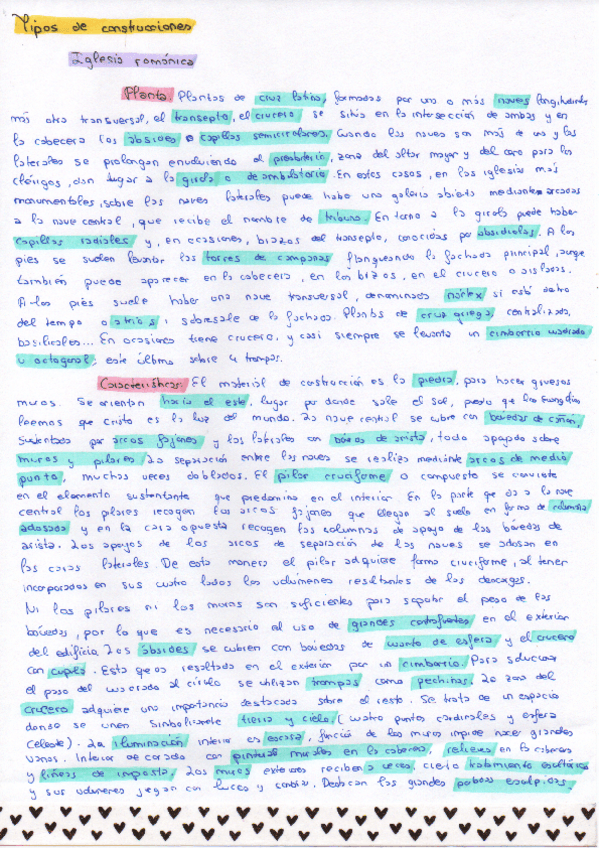 Tipos de construcciones
Iglesia románica
Planta. Plantas de cruz latina, formadas por una o más naves longitudinales
más otra transversal, el transepto, el crucero se sitúa en la intersección de ambas y en
la cabecera los ábsides o capillas semicirculares. Cuando las naves son más de una y las
laterales se prolongan envolviendo al presbiterio, zona del altar mayor y del coro para los
clérigos, dan lugar a la girola o deambulatorio. En estos casos, en las iglesias más
monumentales, sobre las naves laterales puede haber una galería abierta mediante arcadas
a la nave central, que recibe el nombre de tribuna. En torno a la girola puede haber
capillas radiales y, en ocasiones, brazos del transepto, conocidas por absidiolos. A los
pies se suelen levantar las torres de campanas flanqueando la fachada principal, aunque
también puede aparecer en la cabecera, en los brazos, en el crucero o aisladas.
A los pies suele haber una nave transversal, denominada nártex si está dentro
del tempo o atrio si sobresale de la fachada. Plantas de cruz griega, centralizada,
basilicales... En ocasiones tiene crucero, y casi siempre se levanta un cimborrio cuadrado
u octogonal; este último sobre 4 trompas.
Características. El material de construcción es la piedra, para hacer gruesos
muros. Se orientan hacia el este, lugar por donde sale el sol, puesto que los Evangelios
leemos que Cristo es la luz del mundo. La nave central se cubre con bóvedas de cañón,
sustentada por arcos fajones y las laterales con bóvedas de arista, todo apoyado sobre
muros y pilares. La separación entre las naves se realiza mediante arcos de medio
punto, muchas veces doblados. El pilar cruciforme o compuesto se convierte
en el elemento sustentante que predomina en el interior. En la parte que da a la nave
central los pilares recogen los arcos fajones que llegan al suelo en forma de columna
adosada y en la cara opuesta recogen las columnas de apoyo de las bóvedas de
arista. Los apoyos de los arcos de separación de las naves se adosan en
las caras laterales. De esta manera el pilar adquiere forma cruciforme, al tener
incorporados en sus cuatro lados los volúmenes resultantes de las descargas.
Ni los pilares ni los muros son suficientes para soportar el peso de las
bóvedas, por lo que es necesario el uso de grandes contrafuertes en el exterior
del edificio. Los ábsides se cubren con bóvedas de cuarto de esfera y el crucero
con cúpula. Esta queda resaltada en el exterior por un cimborrio. Para solucionar
el paso del cuadrado al círculo se utilizan trompas como pechinas. La zona del
crucero adquiere una importancia destacada sobre el resto. Se trata de un espacio
donde se unen simbólicamente tierra y cielo (cuatro puntos cardinales y esfera
celeste). La iluminación interior es escasa, función de los muros impide hacer grandes
vanos. Interior decorado con pinturas murales en la cabecera, relieves en la cabecera
y líneas de imposta. Los muros exteriores reciben a veces, cierto tratamiento escultórico
y sus volúmenes juegan con luces y sombras. Destacan las grandes portadas esculpidas.